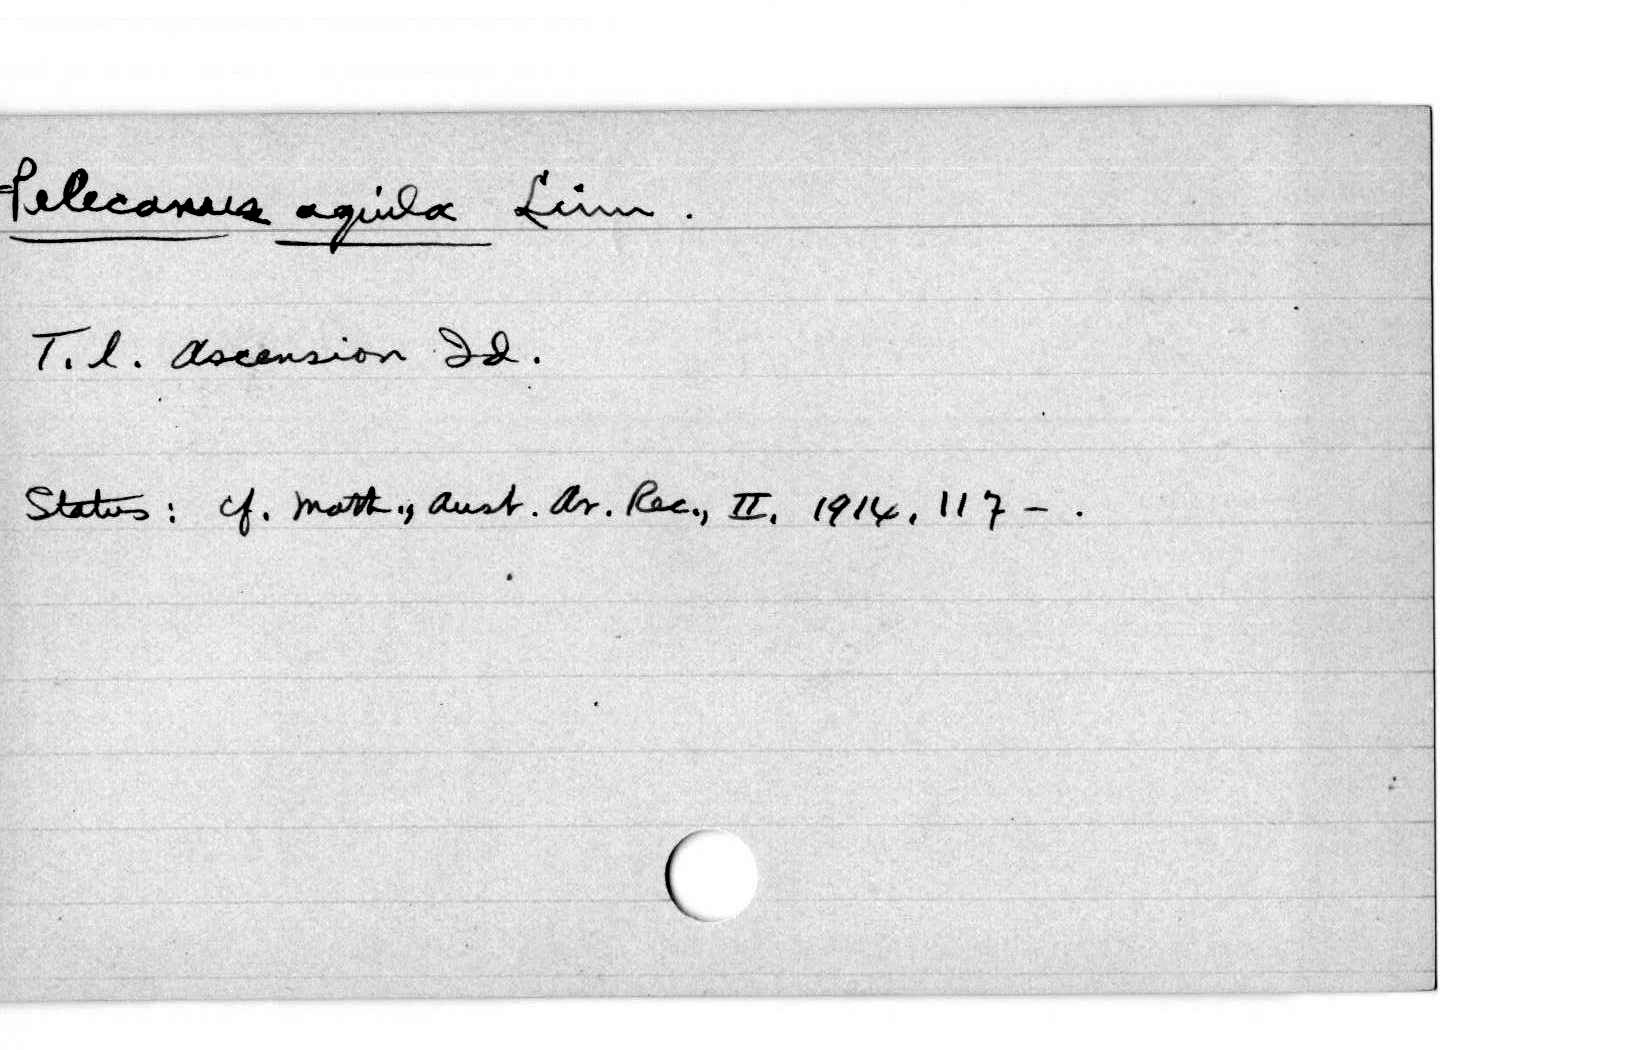 Pelecanus aquila Linn.
T. l. Ascension Id.
Status: cf. Math., Aust. Av. Rec., II. 1914, 117 - .